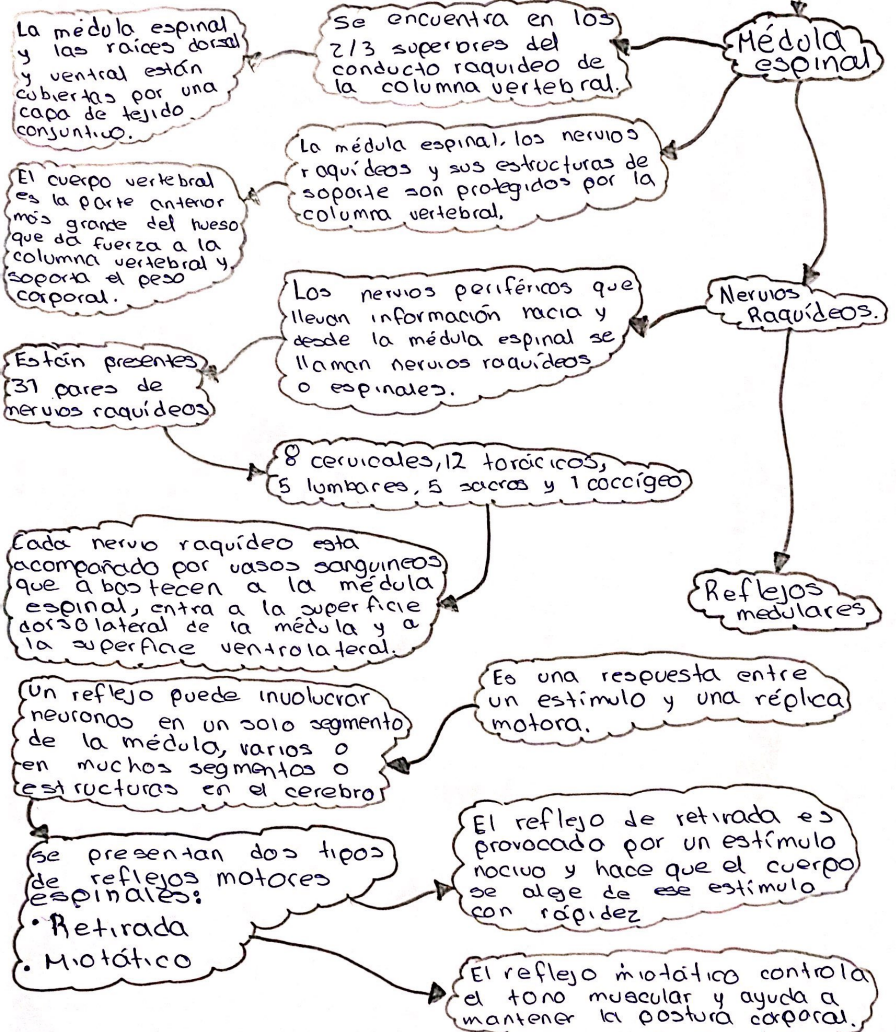 Médula
espinal
Se encuentra en los
2/3 superores del
conducto raquideo de
la columna vertebral.
La médula espinal
y las raíces dorsal
y ventral están
cubiertas por una
capa de tejido
conjuntivo.
La médula espinal, los nervios
raquídeos y sus estructuras de
soporte son protegidos por la
columna vertebral.
El cuerpo vertebral
es la parte anterior
más grande del hueso
que da fuerza a la
columna vertebral y
soporta el peso
corporal.
Nervios
Raquídeos.
Los nervios periféricos que
llevan información hacia y
desde la médula espinal se
llaman nervios raquídeos
o espinales.
Están presentes
31 pares de
nervios raquídeos
8 cervicales, 12 torácicos,
5 lumbares, 5 sacros y 1 coccígeo
Cada nervio raquídeo esta
acompañado por vasos sanguineos
que abastecen a la médula
espinal, entra a la superficie
dorsolateral de la médula y a
la superficie ventrolateral.
Reflejos
medulares
Es una respuesta entre
un estímulo y una réplica
motora.
Un reflejo puede involucrar
neuronas en un solo segmento
de la médula, varios o
en muchos segmentos o
estructuras en el cerebro
Se presentan dos tipos
de reflejos motores
espinales:
• Retirada
• Miotático
El reflejo de retirada es
provocado por un estímulo
nocivo y hace que el cuerpo
se aleje de ese estímulo
con rápidez
El reflejo miotático controla
el tono muscular y ayuda a
mantener la postura corporal.